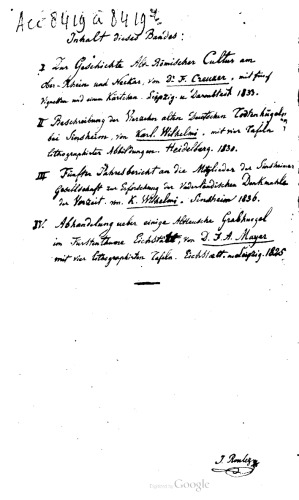 Acc 8419 à 8419
Inhalt dieses Bandes:
I Zur Geschichte Alt-Römischer Cultur am
ober-Rhein und Neckar, von Dr. F. Creuzer, mit fünf
Vignetten und einem Kärtchen. Leipzig u. Darmstadt 1833.
II Beschreibung der vierzehn alten Deutschen Todtenhügel
bei Sinsheim, von Karl Wilhelmi, mit vier Tafeln
lithographirten Abbildungen. Heidelberg. 1830.
III Fünfter Jahresbericht an die Mitglieder der Sinsheimer
Gesellschaft zur Erforschung der Vaterländischen Denkmahle
der Vorzeit. von K. Wilhelmi. Sinsheim 1836.
IV. Abhandlung ueber einige Altdeutsche Grabhuegel
im Fürstenthume Eichstätt, von D. F. A. Mayer
mit vier lithographirten Tafeln. Eichstaett. u. Leipzig. 1825
J. Roulez
Digitized by Google